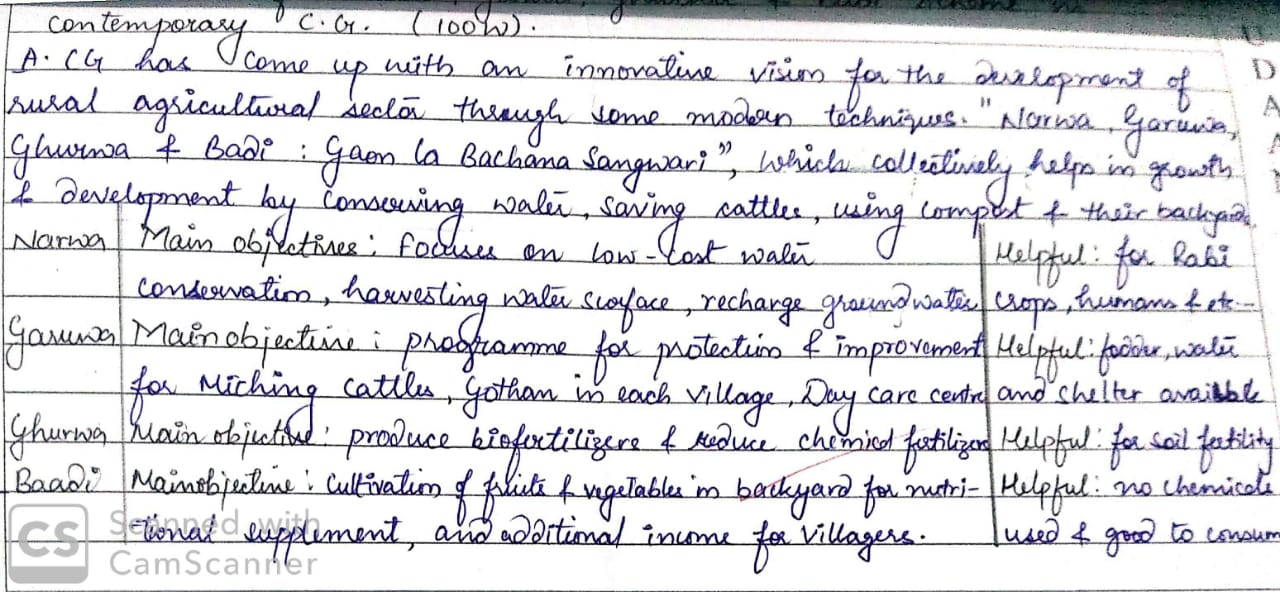 contemporary C.G. (100W).
A. CG has come up with an innovative vision for the development of
rural agricultural sector through some modern techniques. "Narwa, Garuwa,
Ghurwa & Badi : Gaon La Bachana Sangwari", which collectively helps in growth
& development by conserving water, saving cattles, using compost & their backyard.
Narwa Main objectives : focuses on low-cost water Helpful : for Rabi
conservation, harvesting water surface, recharge groundwater crops, humans & etc.
Garuwa Main objective : programme for protection & improvement Helpful : fodder, water
for Miching cattles, Gothan in each village, Day care centre and shelter available
Ghurwa Main objective : produce biofertilizers & reduce chemical fertilizers Helpful : for soil fertility
Baadi Main objective : Cultivation of fruits & vegetables in backyard for nutri- Helpful : no chemicals
tional supplement, and additional income for villagers. used & good to consum
CS Scanned with
CamScanner